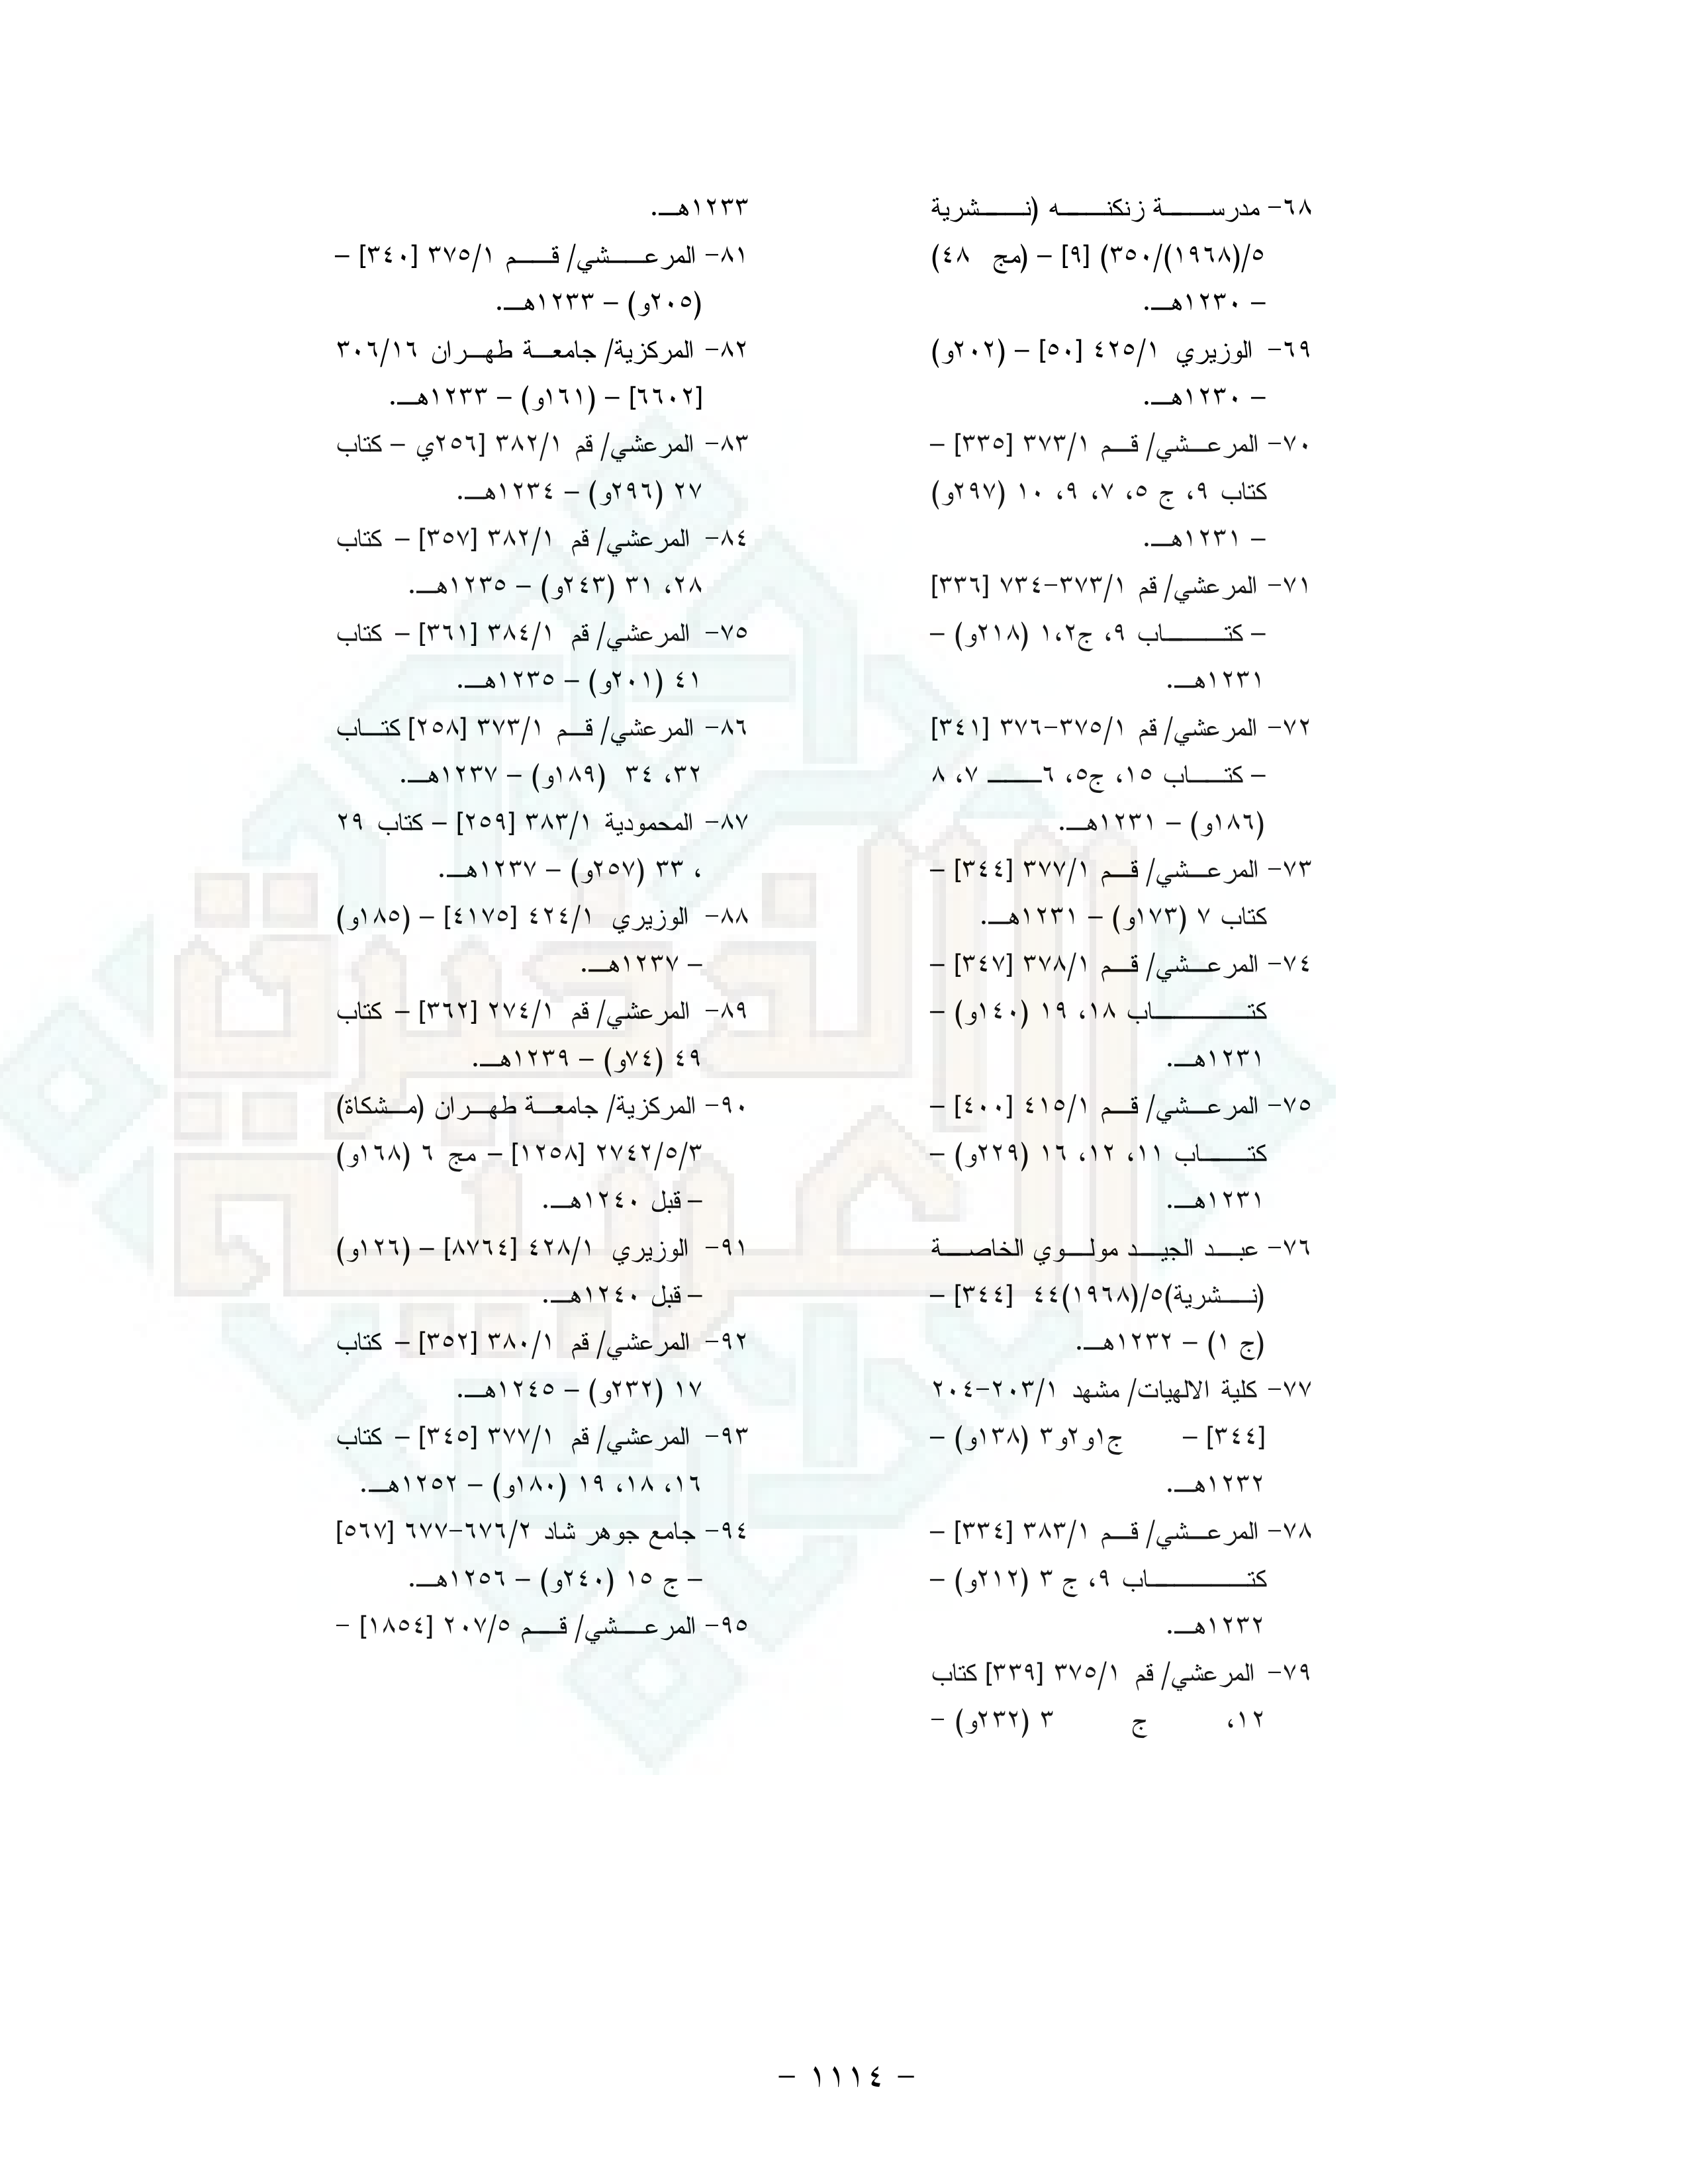 ٦٨- مدرسة زنكنه (نشرية
٥/(١٩٦٨)/٣٥٠) [٩] – (مج ٤٨)
– ١٢٣٠هـ.
٦٩- الوزيري ٤٢٥/١ [٥٠] – (٢٠٢و)
– ١٢٣٠هـ.
٧٠- المرعشي/ قم ٣٧٣/١ [٣٣٥] –
كتاب ٩، ج ٥، ٧، ٩، ١٠ (٢٩٧و)
– ١٢٣١هـ.
٧١- المرعشي/ قم ٣٧٣/١-٧٣٤ [٣٣٦]
– كتاب ٩، ج١،٢ (٢١٨و) –
١٢٣١هـ.
٧٢- المرعشي/ قم ٣٧٥/١-٣٧٦ [٣٤١]
– كتاب ١٥، ج٥، ٦ـ ٧، ٨
(١٨٦و) – ١٢٣١هـ.
٧٣- المرعشي/ قم ٣٧٧/١ [٣٤٤] –
كتاب ٧ (١٧٣و) – ١٢٣١هـ.
٧٤- المرعشي/ قم ٣٧٨/١ [٣٤٧] –
كتاب ١٨، ١٩ (١٤٠و) –
١٢٣١هـ.
٧٥- المرعشي/ قم ٤١٥/١ [٤٠٠] –
كتاب ١١، ١٢، ١٦ (٢٢٩و) –
١٢٣١هـ.
٧٦- عبد الجيد مولوي الخاصة
(نشرية)٥/(١٩٦٨)٤٤ [٣٤٤] –
(ج ١) – ١٢٣٢هـ.
٧٧- كلية الالهيات/ مشهد ٢٠٣/١-٢٠٤
[٣٤٤] – ج١و٢و٣ (١٣٨و) –
١٢٣٢هـ.
٧٨- المرعشي/ قم ٣٨٣/١ [٣٣٤] –
كتاب ٩، ج ٣ (٢١٢و) –
١٢٣٢هـ.
٧٩- المرعشي/ قم ٣٧٥/١ [٣٣٩] كتاب
١٢، ج ٣ (٢٣٢و) –
١٢٣٣هـ.
٨١- المرعشي/ قم ٣٧٥/١ [٣٤٠] –
(٢٠٥و) – ١٢٣٣هـ.
٨٢- المركزية/ جامعة طهران ٣٠٦/١٦
[٦٦٠٢] – (١٦١و) – ١٢٣٣هـ.
٨٣- المرعشي/ قم ٣٨٢/١ [٢٥٦ي – كتاب
٢٧ (٢٩٦و) – ١٢٣٤هـ.
٨٤- المرعشي/ قم ٣٨٢/١ [٣٥٧] – كتاب
٢٨، ٣١ (٢٤٣و) – ١٢٣٥هـ.
٧٥- المرعشي/ قم ٣٨٤/١ [٣٦١] – كتاب
٤١ (٢٠١و) – ١٢٣٥هـ.
٨٦- المرعشي/ قم ٣٧٣/١ [٢٥٨] كتاب
٣٢، ٣٤ (١٨٩و) – ١٢٣٧هـ.
٨٧- المحمودية ٣٨٣/١ [٢٥٩] – كتاب ٢٩
، ٣٣ (٢٥٧و) – ١٢٣٧هـ.
٨٨- الوزيري ٤٢٤/١ [٤١٧٥] – (١٨٥و)
– ١٢٣٧هـ.
٨٩- المرعشي/ قم ٢٧٤/١ [٣٦٢] – كتاب
٤٩ (٧٤و) – ١٢٣٩هـ.
٩٠- المركزية/ جامعة طهران (مشكاة)
٢٧٤٢/٥/٣ [١٢٥٨] – مج ٦ (١٦٨و)
– قبل ١٢٤٠هـ.
٩١- الوزيري ٤٢٨/١ [٨٧٦٤] – (١٢٦و)
– قبل ١٢٤٠هـ.
٩٢- المرعشي/ قم ٣٨٠/١ [٣٥٢] – كتاب
١٧ (٢٣٢و) – ١٢٤٥هـ.
٩٣- المرعشي/ قم ٣٧٧/١ [٣٤٥] – كتاب
١٦، ١٨، ١٩ (١٨٠و) – ١٢٥٢هـ.
٩٤- جامع جوهر شاد ٦٧٦/٢-٦٧٧ [٥٦٧]
– ج ١٥ (٢٤٠و) – ١٢٥٦هـ.
٩٥- المرعشي/ قم ٢٠٧/٥ [١٨٥٤] –
– ١١١٤ –
الذخيرة
العربية